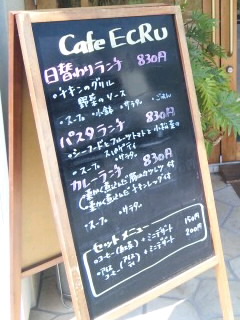 Cafe EcRu
日替わりランチ 830円
・チキンのグリル
野菜のソース
・スープ ・小鉢 ・サラダ ・ごはん
パスタランチ 830円
・シーフードとフルーツトマトと小松菜の
スパゲティ
・スープ ・サラダ
カレーランチ 830円
・スープ ・サラダ
セットメニュー
・コーヒー(紅茶)+ミニデザート 150円
・アイスコーヒー +ミニデザート 200円